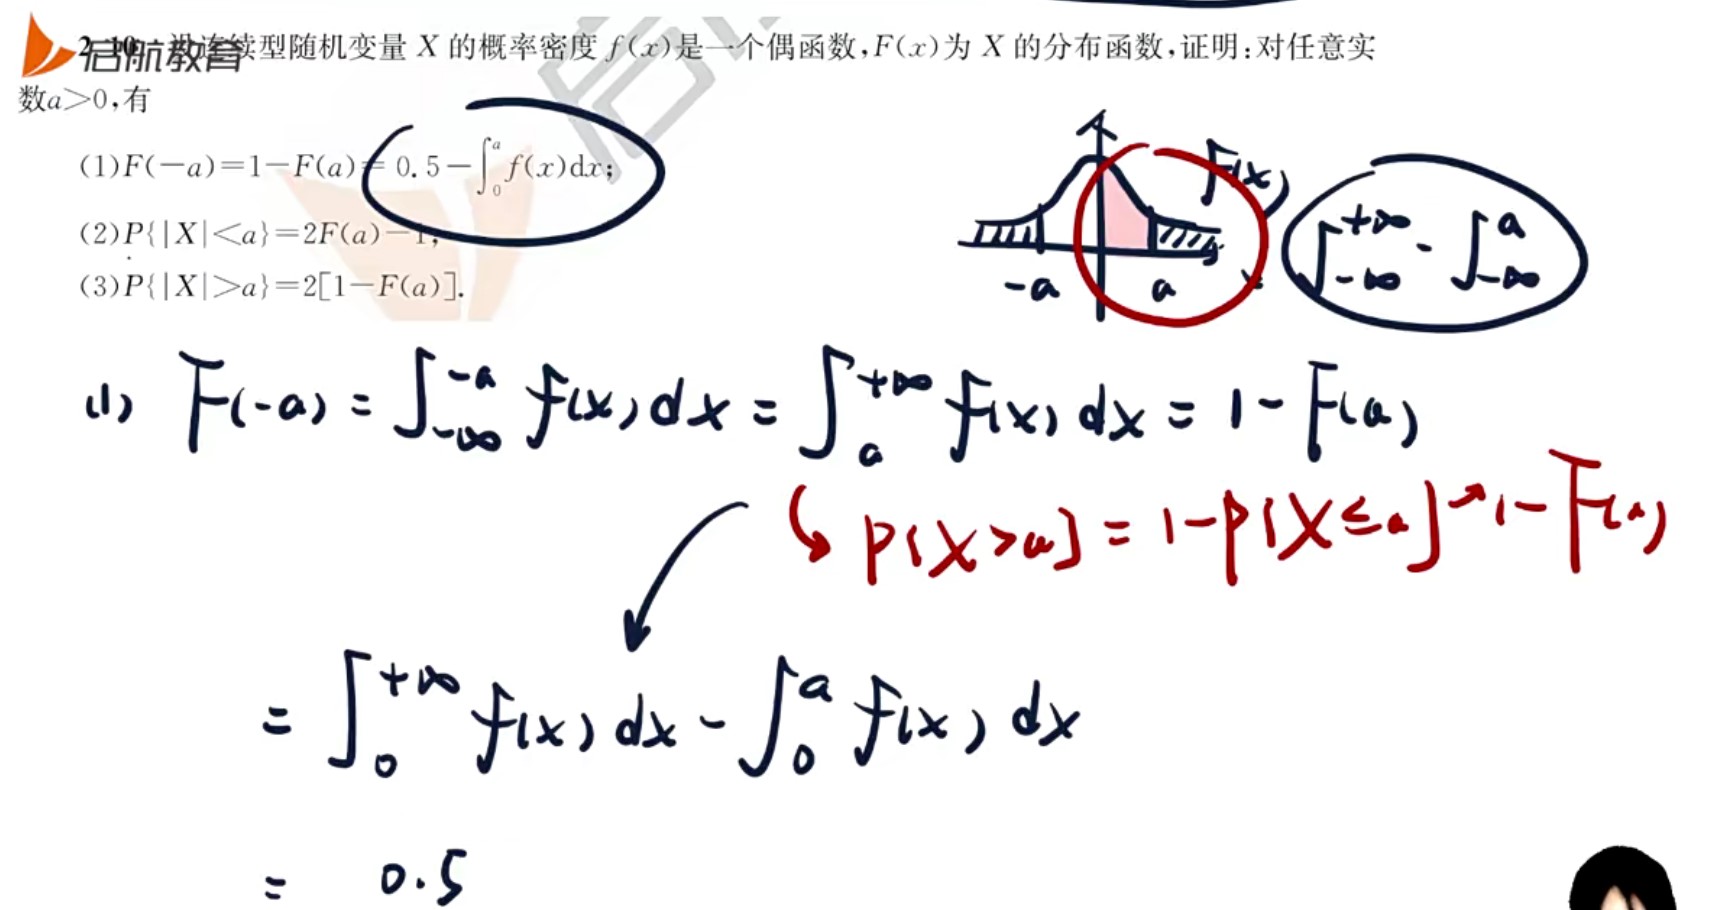 启航教育
2.10 设连续型随机变量 X 的概率密度 f(x)是一个偶函数,F(x)为 X 的分布函数,证明:对任意实
数a>0,有
(1)F(-a)=1-F(a)=0.5-∫₀ᵃ f(x)dx;
(2)P{|X|<a}=2F(a)-1;
(3)P{|X|>a}=2[1-F(a)].
f(x)
-a a
∫_{-∞}^{+∞} - ∫_{-∞}^{a}
(1) F(-a) = ∫_{-∞}^{-a} f(x) dx = ∫_{a}^{+∞} f(x) dx = 1 - F(a)
P{X>a} = 1-P{X≤a} → 1-F(a)
= ∫_{0}^{+∞} f(x) dx - ∫_{0}^{a} f(x) dx
= 0.5